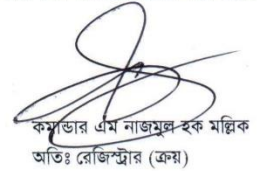 কমান্ডার এম নাজমুল হক মল্লিক
অতিঃ রেজিস্ট্রার (ক্রয়)